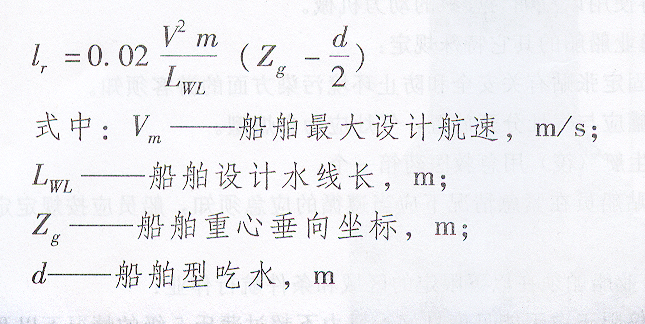 l_r = 0.02 \frac{V^2 m}{L_{WL}} (Z_g - \frac{d}{2})
式中：V_m——船舶最大设计航速，m/s；
L_{WL}——船舶设计水线长，m；
Z_g——船舶重心垂向坐标，m；
d——船舶型吃水，m